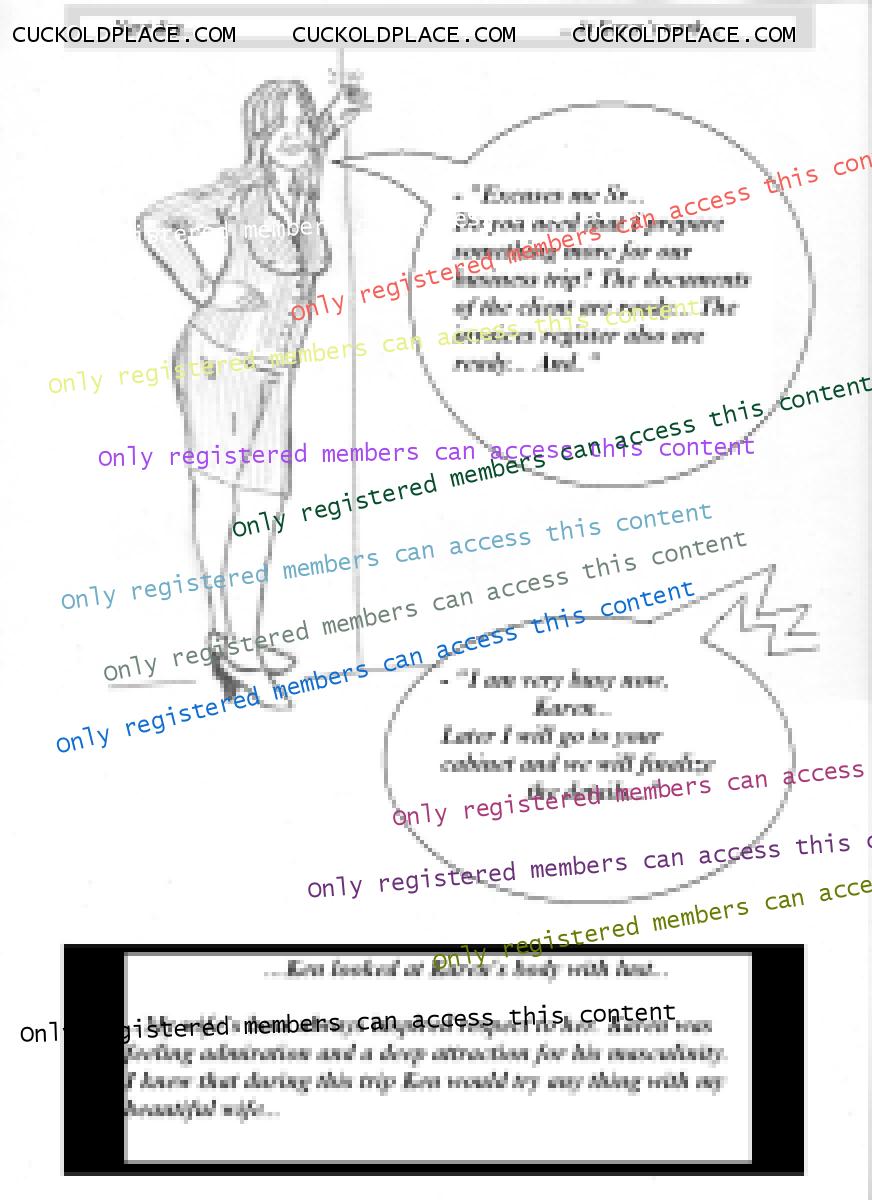 CUCKOLDPLACE.COM CUCKOLDPLACE.COM CUCKOLDPLACE.COM
- "Excuses me Sr...
Do you need that I prepare
something more for our
business trip? The documents
of the client are ready... The
register also are
ready... And.."
Only registered members can access this con
Only registered members can access this content
Only registered members can access this content
Only registered members can access this content
Only registered members can access this content
Only registered members can access this content
Only registered members can access this content
- "I am very busy now,
Karen...
Later I will go to your
cabinet and we will finalize
the details..."
Only registered members can access
Only registered members can access this c
Only registered members can acce
...Ken looked at Karen's body with lust...
Only registered members can access this content
to her. Karen was
feeling admiration and a deep attraction for his masculinity.
I knew that during this trip Ken would try any thing with my
beautiful wife...